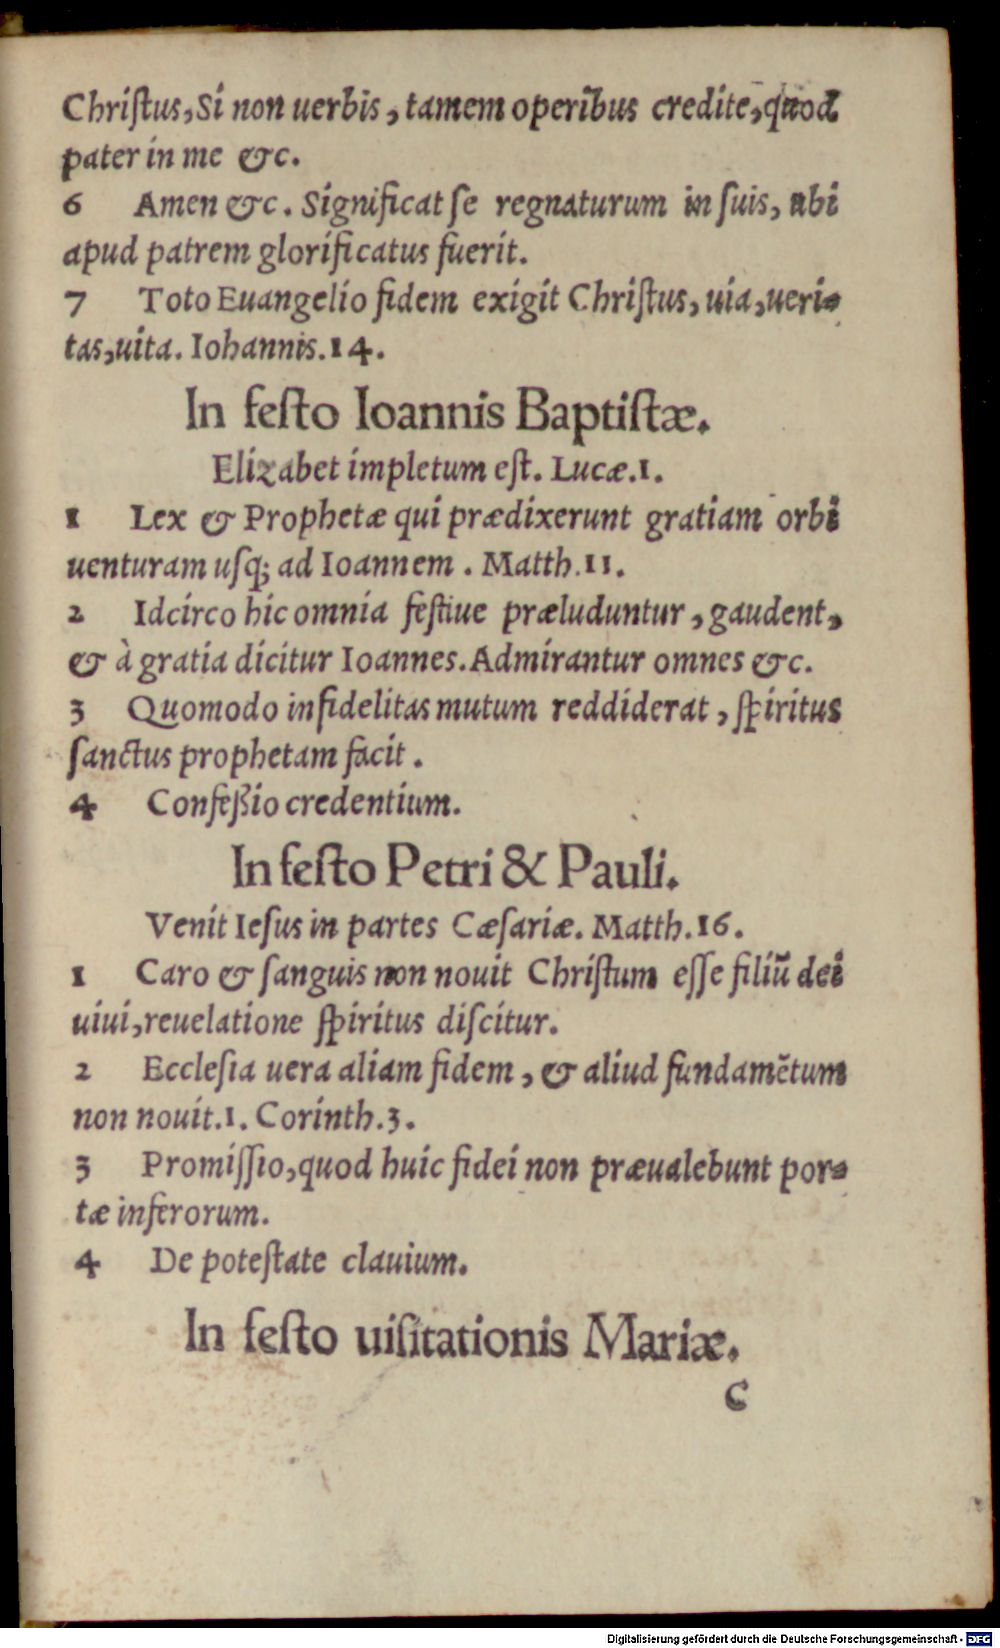 Chriſtus, Si non uerbis, tamem operibus credite, quod
pater in me &c.
6 Amen &c. Significat ſe regnaturum in ſuis, ubi
apud patrem glorificatus fuerit.
7 Toto Euangelio fidem exigit Chriſtus, uia, ueri-
tas, uita. Iohannis. 14.
In feſto Ioannis Baptiſtæ.
Elizabet impletum eſt. Lucæ. 1.
1 Lex & Prophetæ qui prædixerunt gratiam orbi
uenturam uſq; ad Ioannem. Matth. 11.
2 Idcirco hic omnia feſtiue præluduntur, gaudent,
& à gratia dicitur Ioannes. Admirantur omnes &c.
3 Quomodo infidelitas mutum reddiderat, ſpiritus
ſanctus prophetam facit.
4 Confeßio credentium.
In feſto Petri & Pauli.
Venit Ieſus in partes Cæſariæ. Matth. 16.
1 Caro & ſanguis non nouit Chriſtum eſſe filiū dei
uiui, reuelatione ſpiritus diſcitur.
2 Eccleſia uera aliam fidem, & aliud fundamētum
non nouit. 1. Corinth. 3.
3 Promiſſio, quod huic fidei non præualebunt por-
tæ inferorum.
4 De poteſtate clauium.
In feſto uiſitationis Mariæ.
C
Digitalisierung gefördert durch die Deutsche Forschungsgemeinschaft - DFG